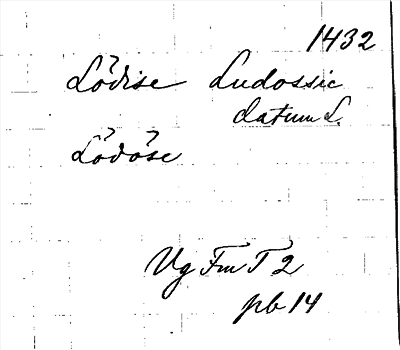 1432
Lödise Ludossie
datum L.
Lödöse
Vg Fm T 2
pb 14